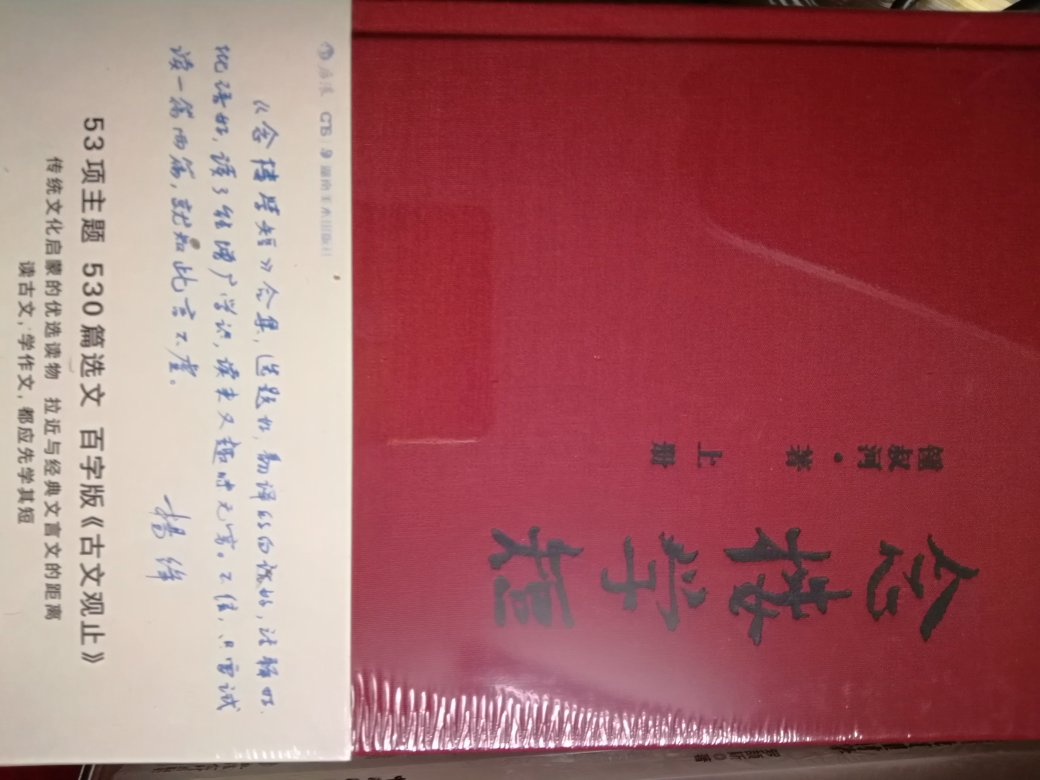 念楼学短
锺叔河·著
上册
后浪 湖南美术出版社
《念楼学短》合集，选题好，翻译的白话好，注释好，
批语好，读了能增广学识，读来又趣味无穷。不信，只需试
读一篇两篇，就知此言不虚。
杨绛
53项主题 530篇选文 百字版《古文观止》
传统文化启蒙的优选读物 拉近与经典文言文的距离
读古文，学作文，都应先学其短